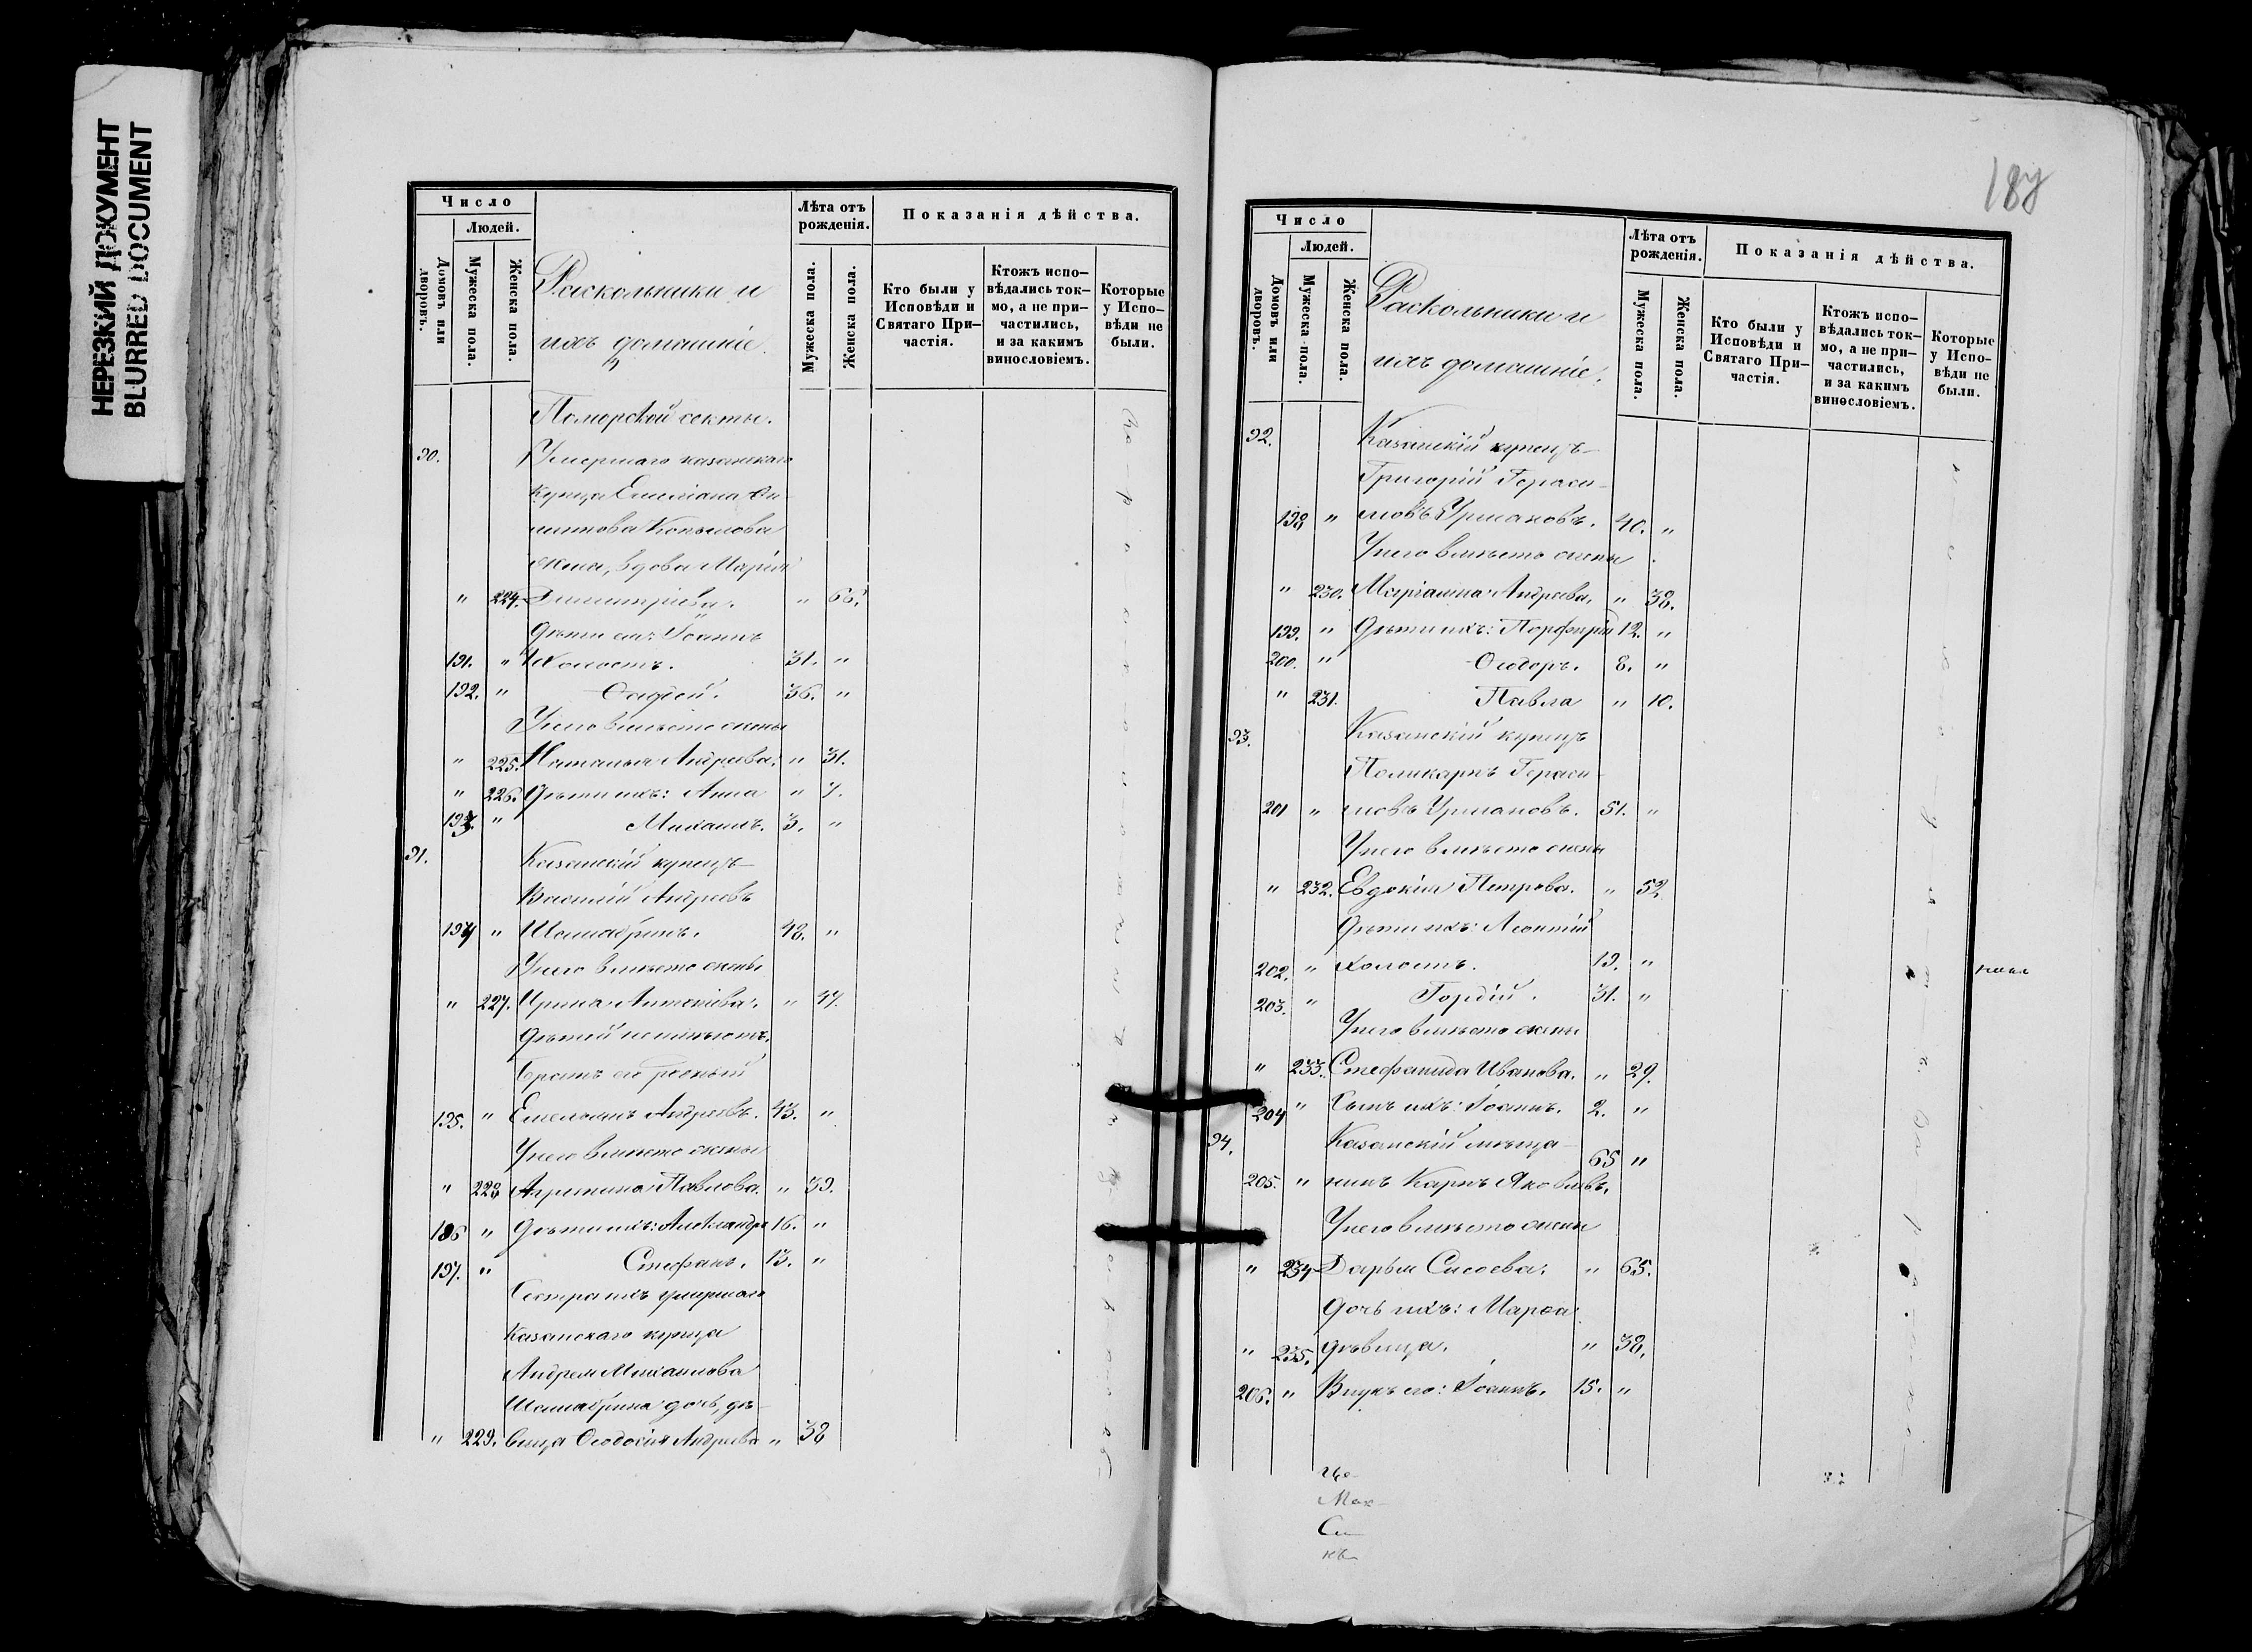 НЕРЕЗКИЙ ДОКУМЕНТ
BLURRED DOCUMENT
Число
Людей.
Домовъ или дворовъ.
Мужеска пола.
Женска пола.
Раскольники и
ихъ домашніе.
Лѣта отъ рожденія.
Мужеска пола.
Женска пола.
Показанія дѣйства.
Кто были у Исповѣди и Святаго Причастія.
Ктожъ исповѣдались токмо, а не причастились, и за какимъ винословіемъ.
Которые у Исповѣди не были.
Поморской секты.
90. Умершаго казанскаго
купца Емеліана
Копылова
жена, вдова Марія
" 224. Димитріева. " 66.
Дѣти ея: Іоаннъ
191. " холостъ. 31. "
192. " Фадей. 36. "
У него вмѣсто жены
" 225. Наталья Андреева. " 31.
" 226. Дѣти ихъ: Анна " 7.
193. " Михаилъ. 3. "
91. Казанскій купецъ
Василій Андреевъ
194 " Шамабринъ. 48. "
У него вмѣсто жены
" 227. Ирина Антоніева. " 47.
Дѣтей не имѣютъ.
Братъ его родный
195. " Емельянъ Андреевъ. 43. "
У него вмѣсто жены
" 228 Агрипина Павлова. " 39.
196 " Дѣти ихъ: Александръ 16. "
197. " Стефанъ. 13. "
Сестра ихъ умершаго
Казанскаго купца
Андрея Михаилова
Шамабрина дочь, дѣ-
" 229. вица Ѳеодосія Андреева " 38
187
Число
Людей.
Домовъ или дворовъ.
Мужеска пола.
Женска пола.
Раскольники и
ихъ домашніе.
Лѣта отъ рожденія.
Мужеска пола.
Женска пола.
Показанія дѣйства.
Кто были у Исповѣди и Святаго Причастія.
Ктожъ исповѣдались токмо, а не причастились, и за какимъ винословіемъ.
Которые у Исповѣди не были.
92. Казанскій купецъ
Григорій Гераси-
198 " мовъ Урмановъ. 40. "
У него вмѣсто жены
" 230. Маріанна Андреева. " 38.
199. " Дѣти ихъ: Порфирій 12. "
200. " Ѳеодоръ. 8. "
" 231. Павла " 10.
93. Казанскій купецъ
Поликарпъ Гераси-
201 " мовъ Урмановъ. 51. "
У него вмѣсто жены
" 232. Евдокія Петрова. " 52
Дѣти ихъ: Леонтій
202. " холостъ. 19. "
203. " Гордій. 31. "
У него вмѣсто жены
" 233. Стефанида Иванова. " 29.
204 " Сынъ ихъ: Іоаннъ. 2. "
94. Казанскій мѣща-
205. " нинъ Карпъ Яковлевъ. 65 "
У него вмѣсто жены
" 234 Дарья Сысоева. " 65.
Дочь ихъ: Марѳа
" 235. дѣвица. " 38.
206. " Внукъ его: Іоаннъ. 15. "